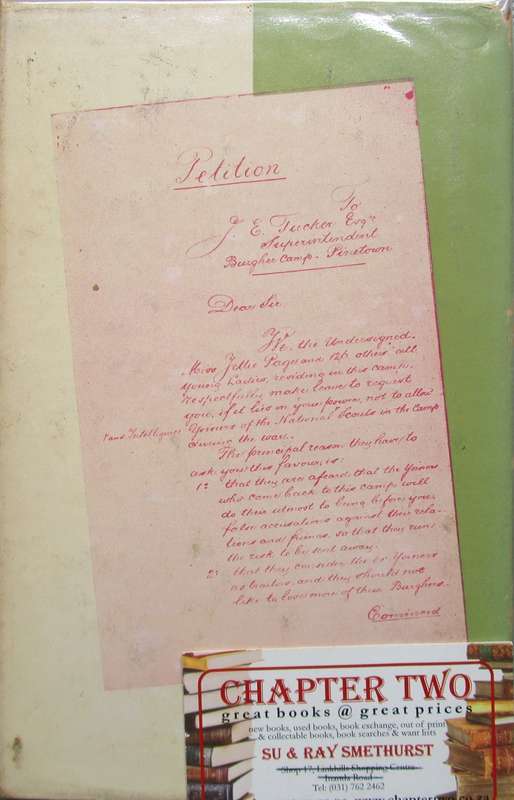 Petition
To
J. E. Tucker Esqre
Superintendent
Burgher Camp - Pinetown
Dear Sir
We, the Undersigned,
Miss Jellie Page and 124 others all
young Ladies, residing in this camp,
respectfully make leave to request
you, if it lies in your power, not to allow
Yoiners of the "National Scouts in the Camp
+ and Intelligence
during the war.
The principal reason they have to
ask you this favour, is
1: that they are afeard that the Yoiners
who come back to this camp will
do their utmost to bring before you
false accusations against their rela-
tions and friends, so that they run
the risk to be sent away.
2: that they consider the Yoiners
as traitors, and they should not
like to lose more of their Burghers.
Continued
CHAPTER TWO
great books @ great prices
new books, used books, book exchange, out of print
& collectable books, book searches & want lists
SU & RAY SMETHURST
Shop 17, Linkhills Shopping Centre
Inanda Road
Tel: (031) 762 2462